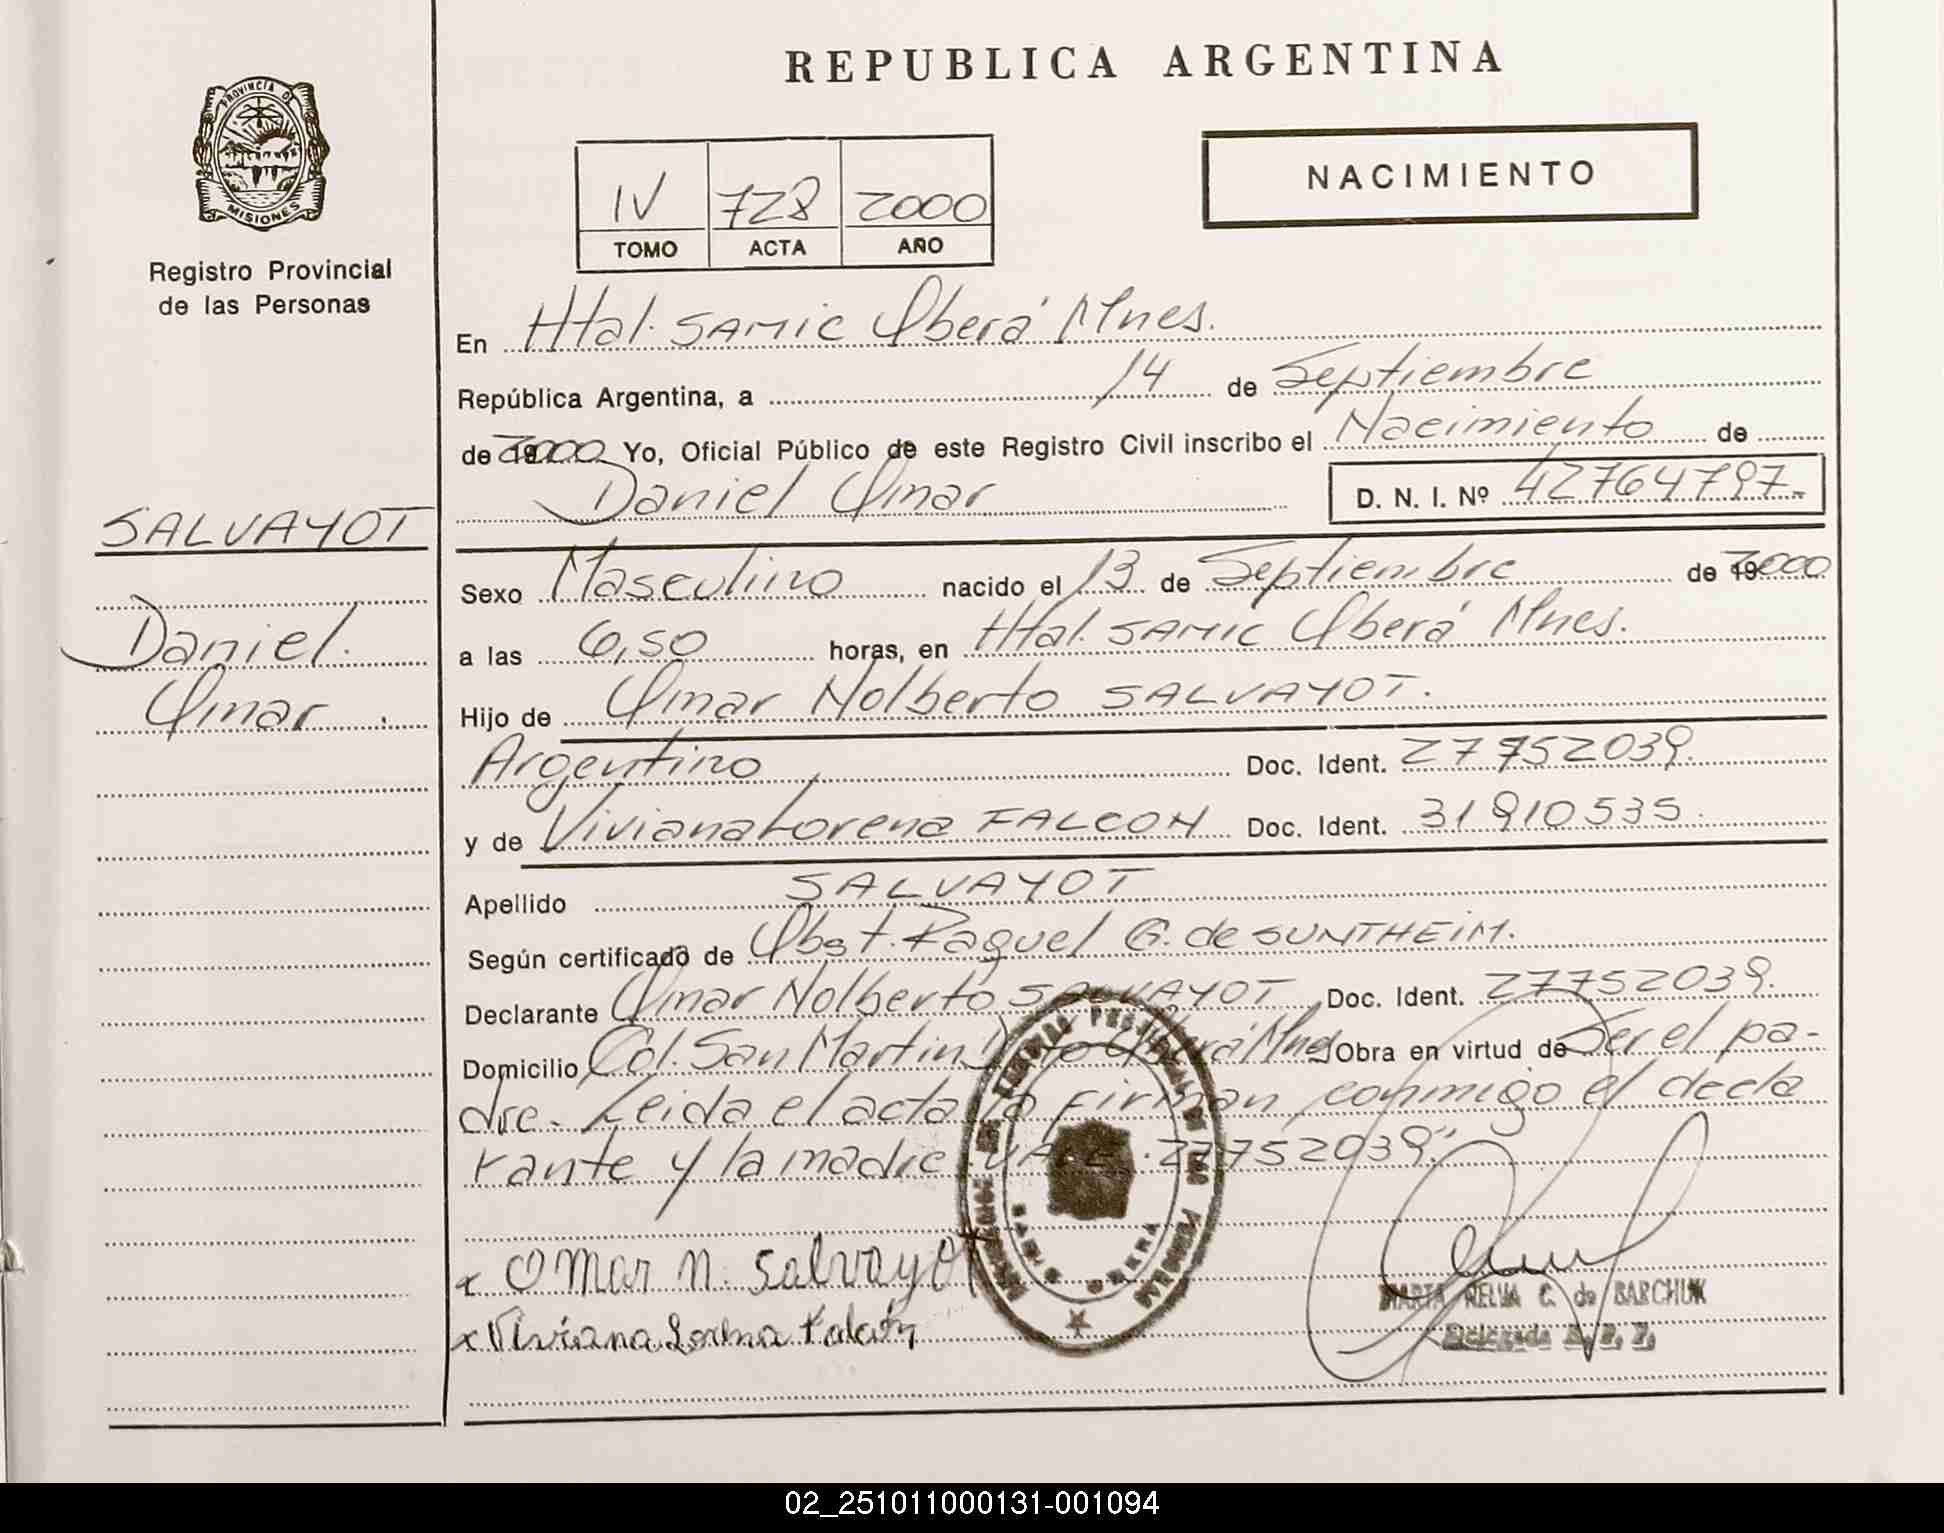 REPUBLICA ARGENTINA
PROVINCIA DE
MISIONES
Registro Provincial
de las Personas
IV 728 2000
TOMO ACTA AÑO
NACIMIENTO
En Htal. SAMIC Oberá Mnes.
República Argentina, a 14 de Septiembre
de 2000 Yo, Oficial Público de este Registro Civil inscribo el Nacimiento de
Daniel Omar D. N. I. Nº 42764797.-
SALVAYOT
Daniel.
Omar.
Sexo Masculino nacido el 13 de Septiembre de 2000
a las 6,50 horas, en Htal. SAMIC Oberá Mnes.
Hijo de Omar Nolberto SALVAYOT.
Argentino, Doc. Ident. 27752039.
y de Viviana Lorena FALCON Doc. Ident. 31910535.
Apellido SALVAYOT
Según certificado de Obst. Raquel G. de SUNTHEIM.
Declarante Omar Nolberto SALVAYOT Doc. Ident. 27752039.
Domicilio Col. San Martin Oberá Mnes Obra en virtud de Ser el pa-
dre. Leida el acta la firman conmigo el decla
rante y la madre. 27752039."
x Omar N. Salvayot
x Viviana Lorena Falcón
MARTA RELVA C. de BARCHUK
Delegada
02_251011000131-001094